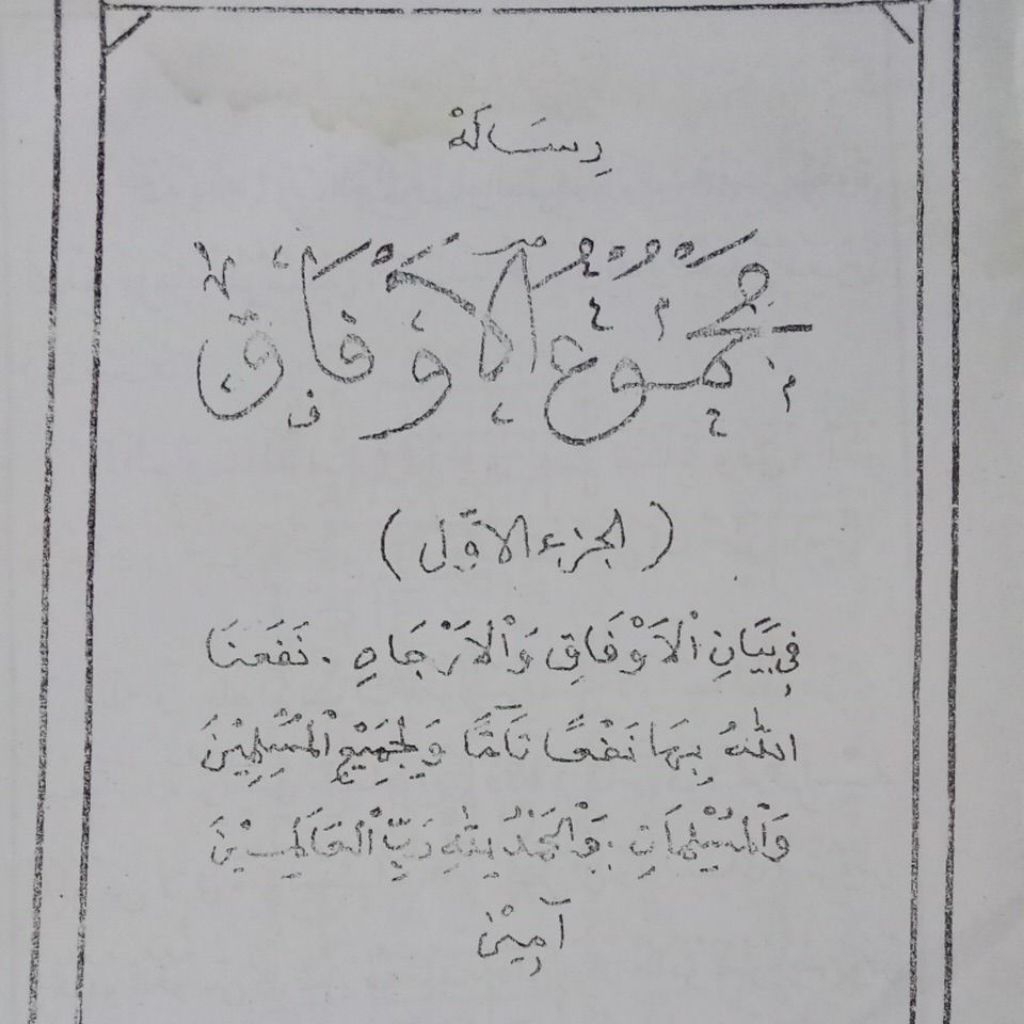 رِسَالَةْ
مَجْمُوْعُ الْاَوْفَاقْ
( الجزء الاوّل )
فِى بَيَانِ الْاَوْفَاقِ وَالْاَرْجَاهِ . نَفَعَنَا
اللهُ بِهَا نَفْعًا تَآمًّا وَلِجَمِيْعِ الْمُسْلِمِيْنَ
وَالْمُسْلِمَاتِ . وَالْحَمْدُ لِلّٰهِ رَبِّ الْعَالَمِيْنَ
آمِيْن